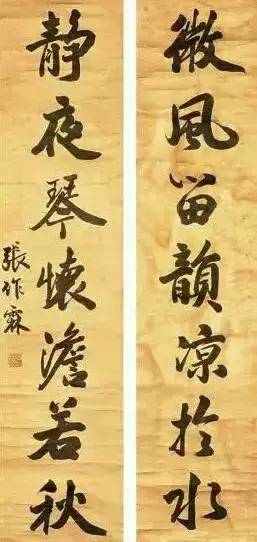 微風留韻涼於水
靜夜琴懷澹若秋
張作霖